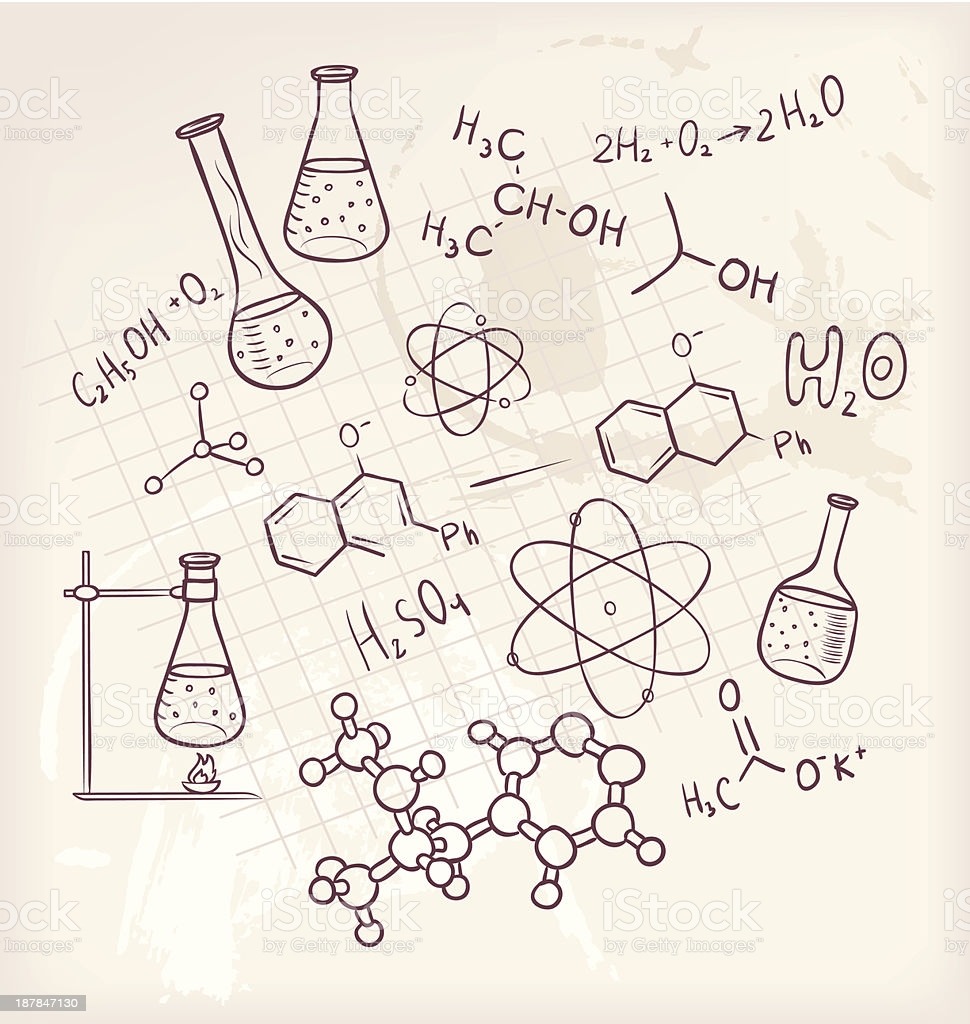 H₃C
CH-OH
H₃C
2H₂+O₂→2H₂O
OH
C₂H₅OH+O₂
O⁻
Ph
H₂O
O⁻
Ph
H₂SO₄
O
H₃C
O⁻K⁺
iStock
by Getty Images™
187847130